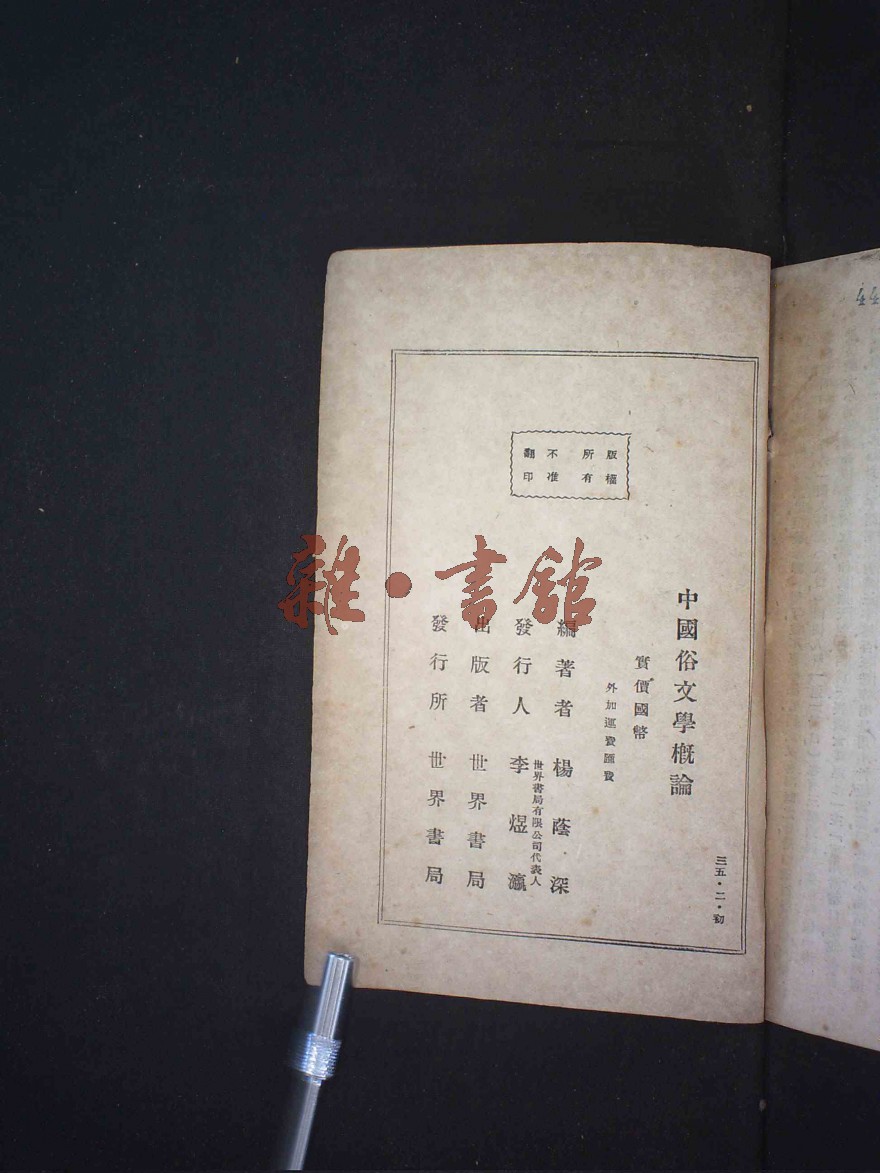 三五·二·初
中國俗文學概論
實價國幣
外加運費匯費
版權
所有
不准
翻印
編著者 楊蔭深
世界書局有限公司代表人
發行人 李煜瀛
出版者 世界書局
發行所 世界書局
雜·書館
44